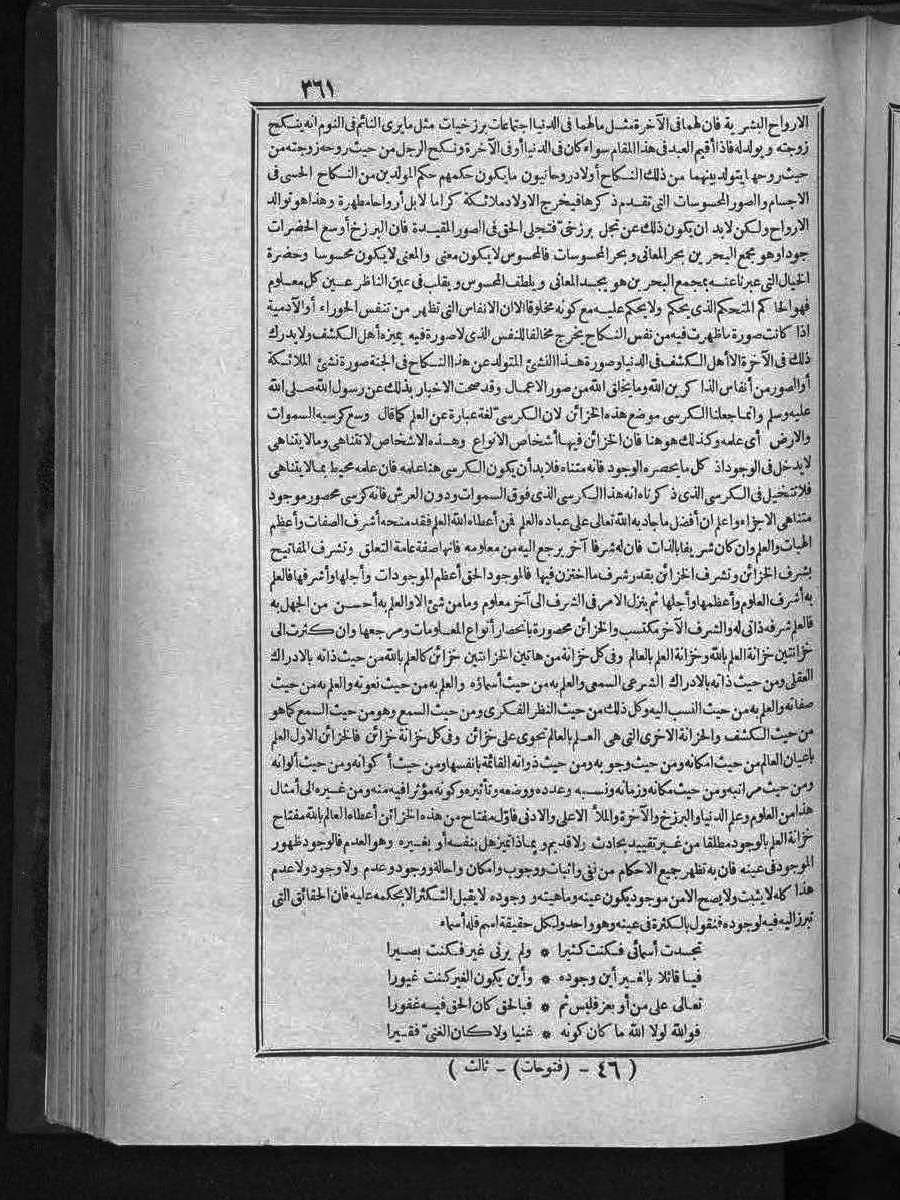 ٣٦١
الارواح البشرية فان لهما فى الآخرة مثل مالهما فى الدنيا اجتماعات برزخيات مثل مايرى النائم فى النوم انه ينكح
زوجته ويولد له فاذا أقيم العبد فى هذا المقام سواء كان فى الدنيا أو فى الآخرة ونكح الرجل من حيث روحه زوجته من
حيث روحها يتولد بينهما من ذلك النكاح أولاد روحانيون مايكون حكمهم حكم المولدين من النكاح الحسى فى
الاجسام والصور المحسوسات التى تقدم ذكرها فيخرج الاولاد ملائكة كراما لابل أرواحا مطهرة وهذا هو توالد
الارواح ولكن لابد ان يكون ذلك عن تجل برزخىّ فتجلى الحق فى الصور المقيدة فان البرزخ أوسع الحضرات
جودا وهو مجمع البحرين بحر المعانى وبحر المحسوسات فالمحسوس لايكون معنى والمعنى لايكون محسوسا وحضرة
الخيال التى عبرنا عنه بمجمع البحرين هو يجسد المعانى ويلطف المحسوس ويقلب فى عين الناظر عين كل معلوم
فهو الحاكم المتحكم الذى يحكم ولا يحكم عليه مع كونه مخلوقا الا ان الانفاس التى تظهر من تنفس الحوراء أو الآدمية
اذا كانت صورة ماظهرت فيه من نفس النكاح يخرج مخالفا للنفس الذى لا صورة فيه يميزه أهل الكشف ولا يدرك
ذلك فى الآخرة الا أهل الكشف فى الدنيا وصورة هذا النشئ المتولد عن هذا النكاح فى الجنة صورة نشئ الملائكة
أو الصور من أنفاس الذاكرين الله وما يخلق الله من صور الاعمال وقد صحت الاخبار بذلك عن رسول الله صلى الله
عليه وسلم وانما جعلنا الكرسى موضع هذه الخزائن لان الكرسىّ لغة عبارة عن العلم كما قال وسع كرسيه السموات
والارض أى علمه وكذلك هو هنا فان الخزائن فيها أشخاص الانواع وهذه الاشخاص لا تتناهى وما لا يتناهى
لا يدخل فى الوجود اذ كل ما يحصره الوجود فانه متناه فلا بد أن يكون الكرسى هنا علمه فان علمه محيط بما لا يتناهى
فلا تتخيل فى الكرسى الذى ذكرناه انه هذا الكرسى الذى فوق السموات ودون العرش فانه كرسى محصور موجود
متناهى الاجزاء واعلم ان أفضل ما جاد به الله تعالى على عباده العلم فمن أعطاه الله العلم فقد منحه أشرف الصفات وأعظم
الهبات والعلم وان كان شريفا بالذات فان له شرفا آخر يرجع اليه من معلومه فانها صفة عامة التعلق وتشرف المفاتيح
بشرف الخزائن وتشرف الخزائن بقدر شرف ما اختزن فيها فالموجود الحق أعظم الموجودات وأجلها وأشرفها فالعلم
به أشرف العلوم وأعظمها وأجلها ثم ينزل الامر فى الشرف الى آخر معلوم وما من شئ الا والعلم به أحسن من الجهل به
فالعلم شرفه ذاتى له والشرف الآخر مكتسب والخزائن محصورة بانحصار أنواع المعلومات ومرجعها وان كثرت الى
خزانتين خزانة العلم بالله وخزانة العلم بالعالم وفى كل خزانة من هاتين الخزانتين خزائن كالعلم بالله من حيث ذاته بالادراك
العقلى ومن حيث ذاته بالادراك الشرعى السمعى والعلم به من حيث أسماؤه والعلم به من حيث نعوته والعلم به من حيث
صفاته والعلم به من حيث النسب اليه وكل ذلك من حيث النظر الفكرى ومن حيث السمع وهو من حيث السمع كما هو
من حيث الكشف والخزانة الاخرى التى هى العلم بالعالم تحوى على خزائن وفى كل خزانة خزائن فالخزائن الاول العلم
باعيان العالم من حيث امكانه ومن حيث وجوبه ومن حيث ذواته القائمة بانفسها ومن حيث أكوانه ومن حيث ألوانه
ومن حيث مراتبه ومن حيث مكانه وزمانه ونسبه وعدده ووضعه وتأثيره وكونه مؤثرا فيه منه ومن غيره الى أمثال
هذا من العلوم وعلم الدنيا والبرزخ والآخرة والملأ الاعلى والادنى فاوّل مفتاح من هذه الخزائن أعطاه العالم بالله مفتاح
خزانة العلم بالوجود مطلقا من غير تقييد بحادث ولا قديم وبماذا تميز هل بنفسه أو بغيره وهو العدم فالوجود ظهور
الموجود فى عينه فان به تظهر جميع الاحكام من نفى واثبات ووجوب وامكان واحالة ووجود وعدم ولا وجود ولا عدم
هذا كله لا يثبت ولا يصح الا من موجود يكون عينه وماهيته ووجوده لا يقبل التكثر الا بحكمه عليه فان الحقائق التى
تبرز اليه فيه لوجوده فنقول بالكثرة فى عينه وهو واحد ولكل حقيقة اسم فله أسماء
تجسدت أسمائى فكنت كثيرا * ولم يرنى غير فكنت بصيرا
فيا قائلا بالغير أين وجوده * وأين يكون الغير كنت غيورا
تعالى على من أو بعز فليس ثم * فبالحق كان الحق فيه غفورا
فوالله لولا الله ما كان كونه * غنيا ولا كان الغنىّ فقيرا
( ٤٦ - (فتوحات) - ثالث )